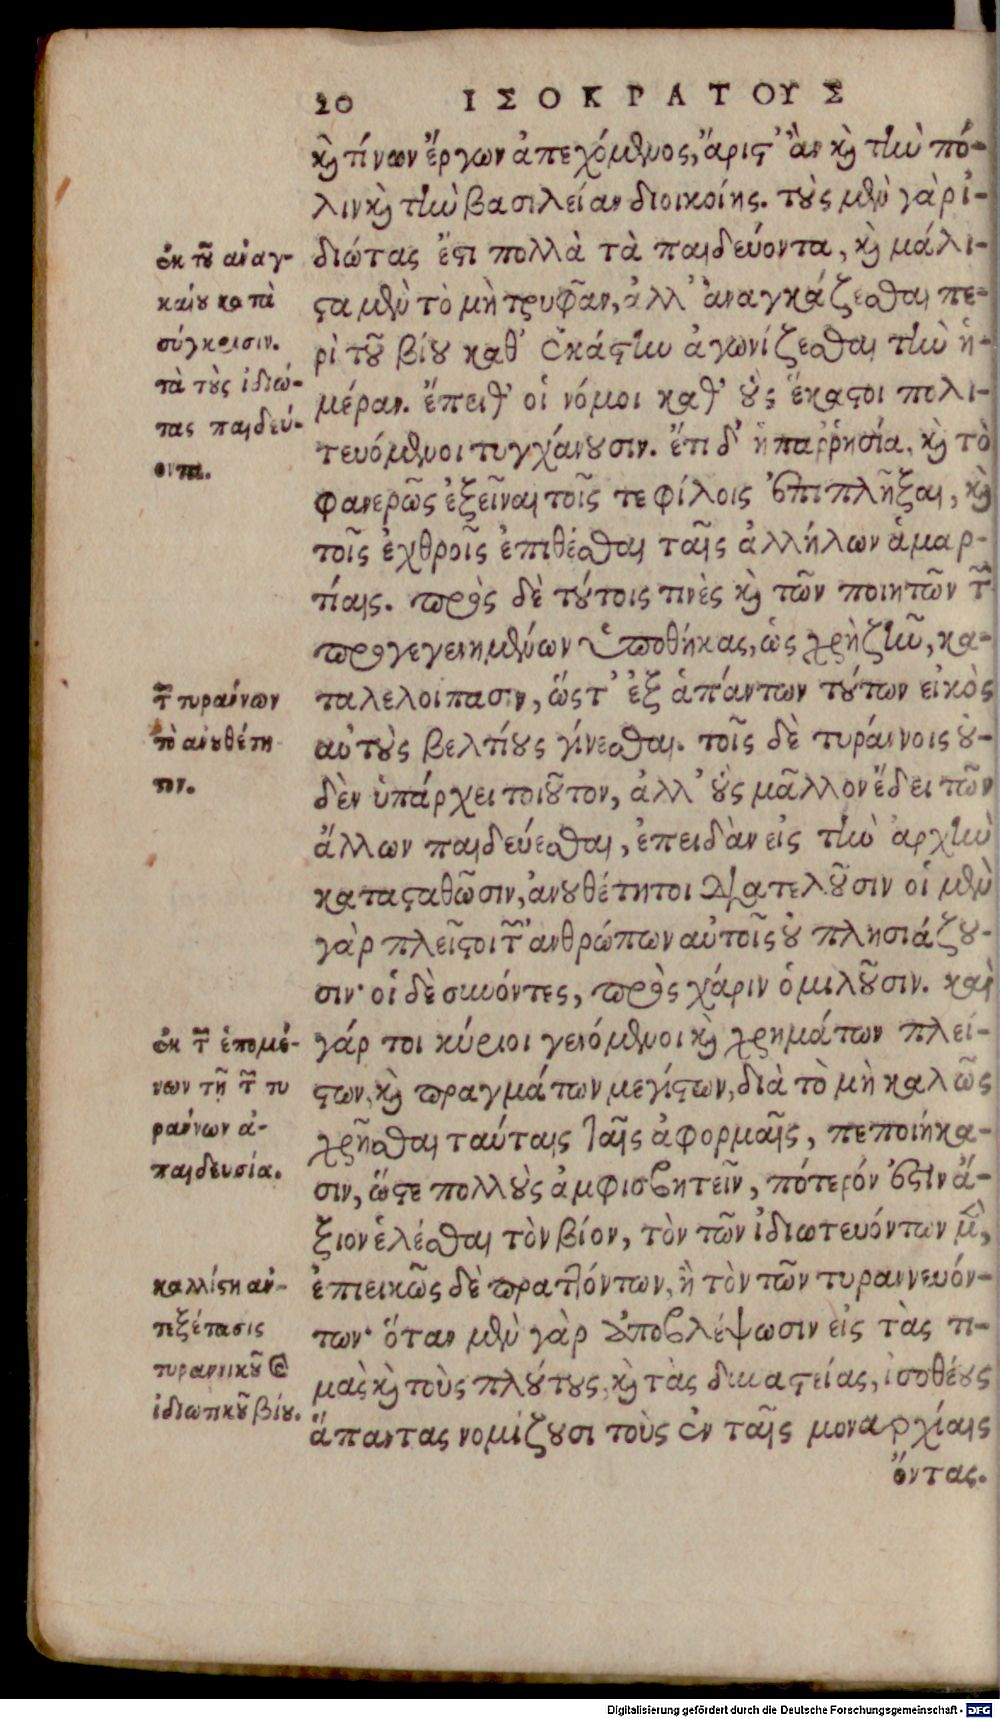 20 ΙΣΟΚΡΑΤΟΥΣ
καὶ τίνων ἔργων ἀπεχόμενος, ἄριστ' ἂν καὶ τὴν πό-
λιν καὶ τὴν βασιλείαν διοικοίης. τοὺς μὲν γὰρ ἰ-
διώτας ἔστι πολλὰ τὰ παιδεύοντα, καὶ μάλι-
στα μὲν τὸ μὴ τρυφᾶν, ἀλλ' ἀναγκάζεσθαι πε-
ρὶ τοῦ βίου καθ' ἑκάστην ἀγωνίζεσθαι τὴν ἡ-
μέραν. ἔπειθ' οἱ νόμοι καθ' οὓς ἕκαστοι πολι-
τευόμενοι τυγχάνουσιν. ἔτι δ' ἡ παῤῥησία, καὶ τὸ
φανερῶς ἐξεῖναι τοῖς τε φίλοις ἐπιπλῆξαι, καὶ
τοῖς ἐχθροῖς ἐπιθέσθαι ταῖς ἀλλήλων ἁμαρ-
τίαις. πρὸς δὲ τούτοις τινὲς καὶ τῶν ποιητῶν τῶν
προγεγενημένων ὑποθήκας, ὡς χρὴ ζῆν, κα-
ταλελοίπασιν, ὥστ' ἐξ ἁπάντων τούτων εἰκὸς
αὐτοὺς βελτίους γίνεσθαι. τοῖς δὲ τυράννοις οὐ-
δὲν ὑπάρχει τοιοῦτον, ἀλλ' οὓς μᾶλλον ἔδει τῶν
ἄλλων παιδεύεσθαι, ἐπειδὰν εἰς τὴν ἀρχὴν
κατασταθῶσιν, ἀνουθέτητοι διατελοῦσιν οἱ μὲν
γὰρ πλεῖστοι τῶν ἀνθρώπων αὐτοῖς οὐ πλησιάζου-
σιν· οἱ δὲ συνόντες, πρὸς χάριν ὁμιλοῦσιν. καὶ
γάρ τοι κύριοι γενόμενοι καὶ χρημάτων πλεί-
στων, καὶ πραγμάτων μεγίστων, διὰ τὸ μὴ καλῶς
χρῆσθαι ταύταις ταῖς ἀφορμαῖς, πεποιήκα-
σιν, ὥστε πολλοὺς ἀμφισβητεῖν, πότερόν ἐστιν ἄ-
ξιον ἑλέσθαι τὸν βίον, τὸν τῶν ἰδιωτευόντων μὲν,
ἐπιεικῶς δὲ πραττόντων, ἢ τὸν τῶν τυραννευόν-
των· ὅταν μὲν γὰρ ἀποβλέψωσιν εἰς τὰς τι-
μὰς καὶ τοὺς πλούτους, καὶ τὰς δυναστείας, ἰσοθέους
ἅπαντας νομίζουσι τοὺς ἐν ταῖς μοναρχίαις
ὄντας.
ἐκ τοῦ ἀναγ-
καίου κατὰ
σύγκρισιν.
τὰ τοὺς ἰδιώ-
τας παιδεύ-
οντα.
τῶν τυράννων
τὸ ἀνουθέτη
τον.
ἐκ τῶν ἑπομέ-
νων τῇ τῶν τυ
ράννων ἀ-
παιδευσία.
καλλίστη ἀν-
τεξέτασις
τυραννικοῦ καὶ
ἰδιωτικοῦ βίου.
Digitalisierung gefördert durch die Deutsche Forschungsgemeinschaft - DFG